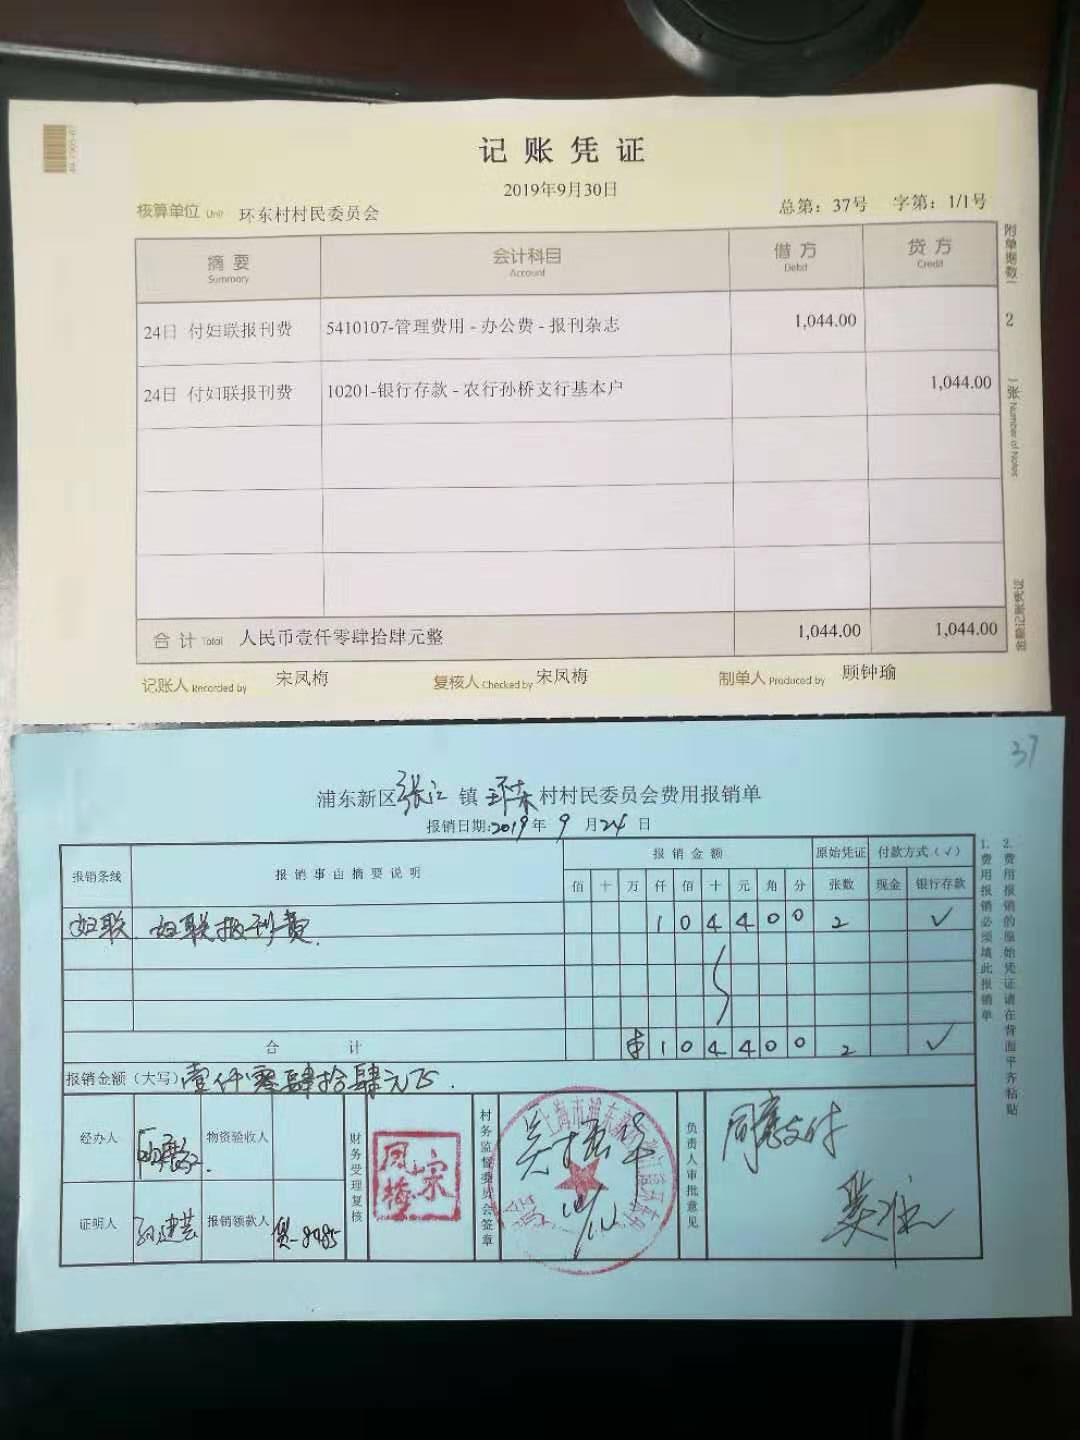 记账凭证
2019年9月30日
核算单位 Unit 环东村村民委员会 总第：37号 字第：1/1号
摘要 Summary 会计科目 Account 借方 Debit 贷方 Credit
24日 付妇联报刊费 5410107-管理费用 - 办公费 - 报刊杂志 1,044.00
24日 付妇联报刊费 10201-银行存款 - 农行孙桥支行基本户 1,044.00
合计 Total 人民币壹仟零肆拾肆元整 1,044.00 1,044.00
记账人 Recorded by 宋凤梅 复核人 Checked by 宋凤梅 制单人 Produced by 顾钟瑜
附单据数 2 张 Number of Notes
金额记账凭证
37
浦东新区张江镇环东村村民委员会费用报销单
报销日期:2019年9月24日
报销条线 报销事由摘要说明 报销金额 原始凭证 付款方式（√）
佰 十 万 仟 佰 十 元 角 分 张数 现金 银行存款
妇联 妇联报刊费. 1 0 4 4 0 0 2 √
合计 ¥ 1 0 4 4 0 0 2 √
报销金额（大写）壹仟零肆拾肆元正.
经办人 物资验收人
证明人 报销领款人 贷-8485
财务受理复核
宋凤梅
村务监督委员会签章
负责人审批意见
同意支付
1.费用报销必须填此报销单
2.费用报销的原始凭证请在背面平齐粘贴